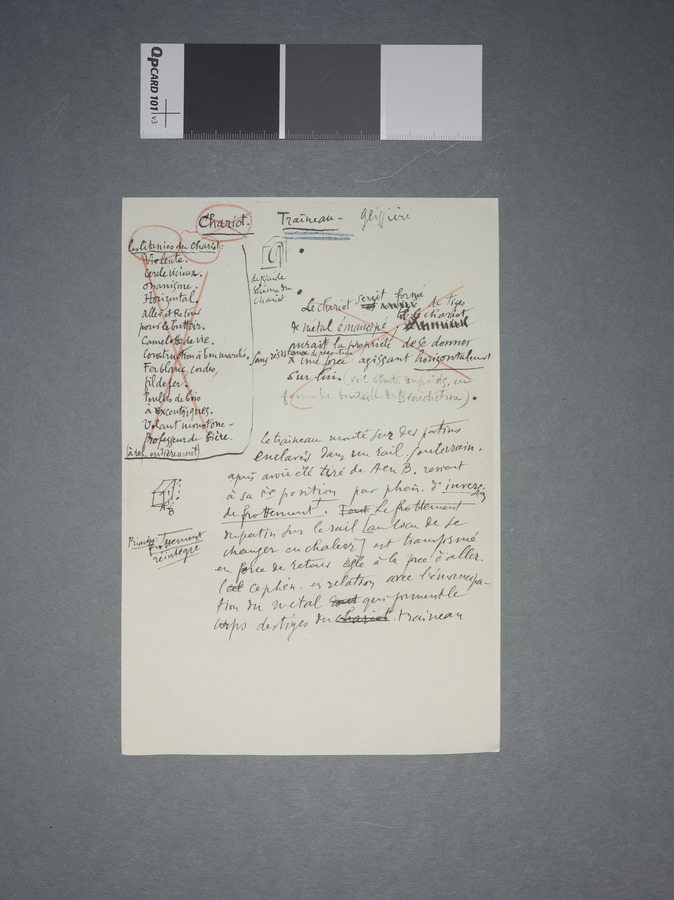 QpCARD 101 v3
Chariot. Traîneau - glissière
les litanies du Chariot:
Violente.
Cercle vicieux.
onanisme.
Horizontal.
aller et Retour
pour le buttoir.
Camelotte de vie.
Construction à bon marché.
Fer blanc, cordes,
fil de fer.
Poulies de bois
à excentriques.
Volant monotone -
Professeur de bière.
(à réc. entièrement)
dessin de
Chariot
Le chariot serait formé de tiges
de métal émancipé, le chariot
aurait la propriété de se donner
sans résistance de pesanteur
à une force agissant horizontalement
sur lui. (voir chute du poids, en
forme de bouteille de Bénédictine).
Le traîneau monté sur des patins
enclavés dans un rail souterrain.
après avoir été tiré de A en B. revient
à sa 1ère position par phén. d'inversion
de frottement. Tout Le frottement
du patin sur le rail [au lieu de se
changer en chaleur] est transformé
en force de retour égle à la force à aller.
(cet ce phén. en relation avec l'émancipa-
tion du métal dont qui forment le
corps des tiges du chariot. traîneau
A
B
Principe: frottement
réintégré